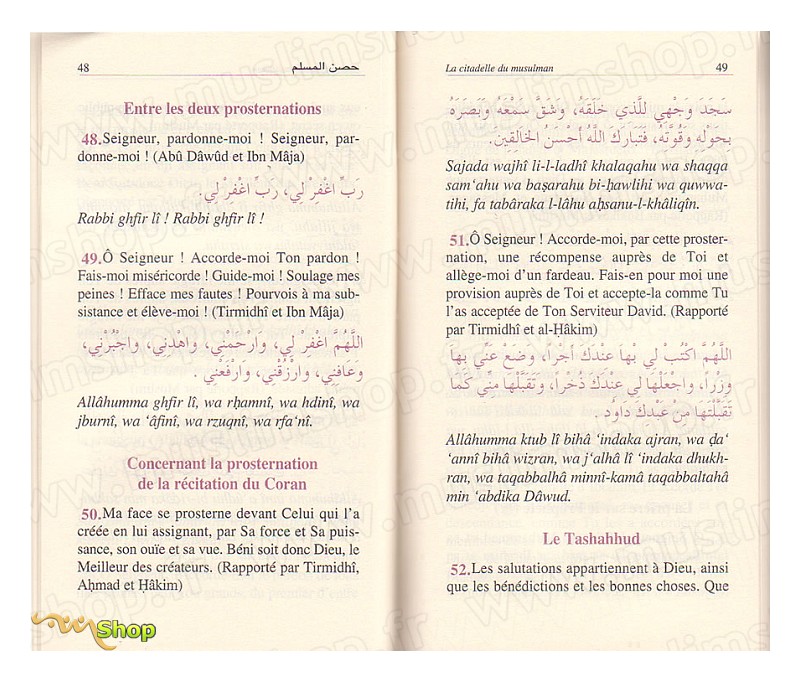 48
حصن المسلم
Entre les deux prosternations
48.Seigneur, pardonne-moi ! Seigneur, par-
donne-moi ! (Abû Dâwûd et Ibn Mâja)
رَبِّ اغْفِرْ لِي، رَبِّ اغْفِرْ لِي.
Rabbi ghfir lî ! Rabbi ghfir lî !
49.Ô Seigneur ! Accorde-moi Ton pardon !
Fais-moi miséricorde ! Guide-moi ! Soulage mes
peines ! Efface mes fautes ! Pourvois à ma sub-
sistance et élève-moi ! (Tirmidhî et Ibn Mâja)
اللَّهُمَّ اغْفِرْ لِي، وَارْحَمْنِي، وَاهْدِنِي، وَاجْبُرْنِي،
وَعَافِنِي، وَارْزُقْنِي، وَارْفَعْنِي.
Allâhumma ghfir lî, wa rḥamnî, wa hdinî, wa
jburnî, wa ‘âfinî, wa rzuqnî, wa rfa‘nî.
Concernant la prosternation
de la récitation du Coran
50.Ma face se prosterne devant Celui qui l’a
créée en lui assignant, par Sa force et Sa puis-
sance, son ouïe et sa vue. Béni soit donc Dieu, le
Meilleur des créateurs. (Rapporté par Tirmidhî,
Aḥmad et Ḥâkim)
La citadelle du musulman
49
سَجَدَ وَجْهِي لِلَّذِي خَلَقَهُ، وَشَقَّ سَمْعَهُ وَبَصَرَهُ
بِحَوْلِهِ وَقُوَّتِهُ، فَتَبَارَكَ اللَّهُ أَحْسَنُ الخَالِقِينَ.
Sajada wajhî li-l-ladhî khalaqahu wa shaqqa
sam‘ahu wa baṣarahu bi-ḥawlihi wa quwwa-
tihi, fa tabâraka l-lâhu aḥsanu-l-khâliqîn.
51.Ô Seigneur ! Accorde-moi, par cette proster-
nation, une récompense auprès de Toi et
allège-moi d’un fardeau. Fais-en pour moi une
provision auprès de Toi et accepte-la comme Tu
l’as acceptée de Ton Serviteur David. (Rapporté
par Tirmidhî et al-Ḥâkim)
اللَّهُمَّ اكْتُبْ لِي بِهَا عِنْدَكَ أَجْرًا، وَضَعْ عَنِّي بِهَا
وِزْرًا، وَاجْعَلْهَا لِي عِنْدَكَ ذُخْرًا، وَتَقَبَّلْهَا مِنِّي كَمَا
تَقَبَّلْتَهَا مِنْ عَبْدِكَ دَاوُدَ.
Allâhumma ktub lî bihâ ‘indaka ajran, wa ḍa‘
‘annî bihâ wizran, wa j‘alhâ lî ‘indaka dhukh-
ran, wa taqabbalhâ minnî-kamâ taqabbaltahâ
min ‘abdika Dâwud.
Le Tashahhud
52.Les salutations appartiennent à Dieu, ainsi
que les bénédictions et les bonnes choses. Que
Shop
www.muslimshop.fr